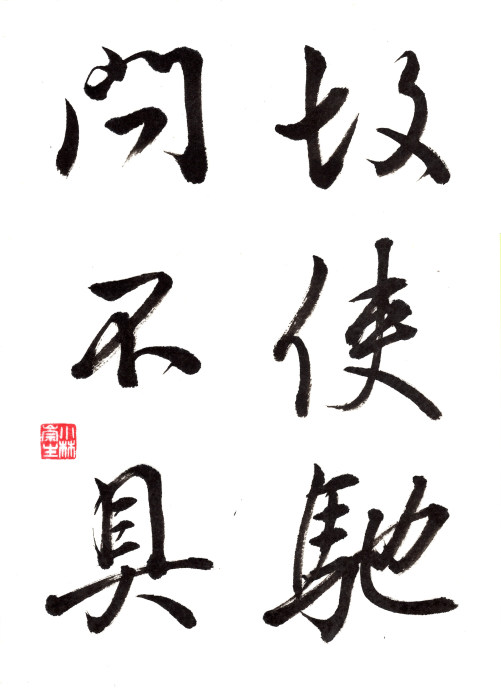 故使馳
問不具
小林